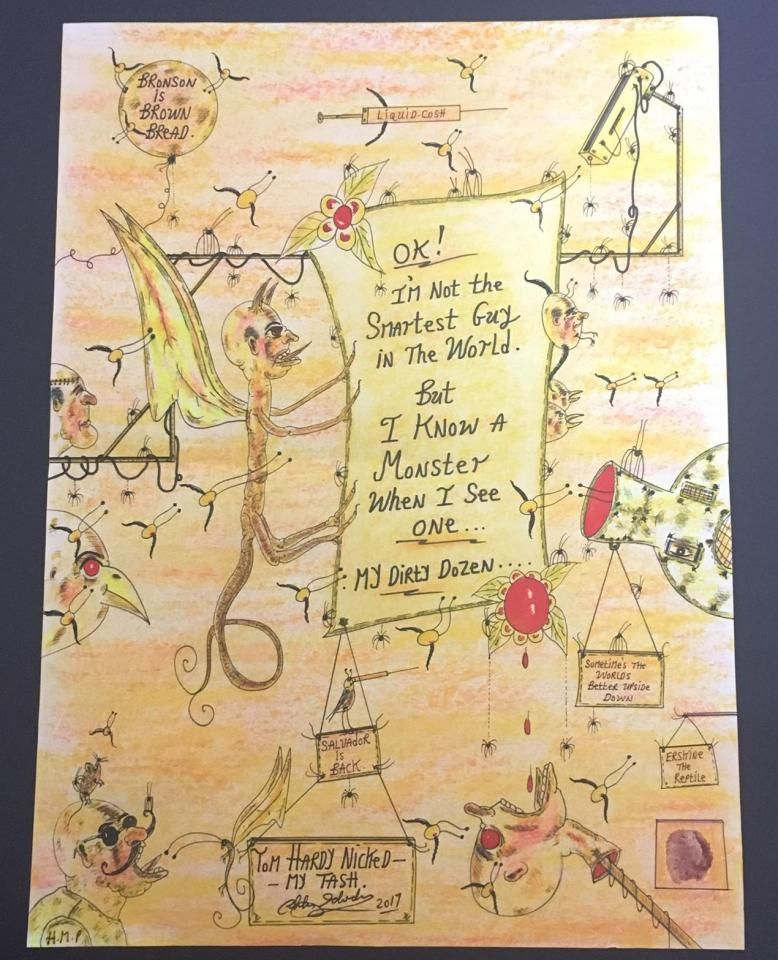 BRONSON
iS
BROWN
BREAD.
LiQUiD-COSH
OK!
I'M Not the
SMARTEST GUY
iN THE WORLD.
But
I KNOW A
MONSTER
WHEN I SEE
ONE...
MY DiRTY DOZEN....
SOMETiME'S THE
WORLDS
BETTER UPSiDE
DOWN
SALVADOR
iS
BACK.
ERSKiNE
THE
REPTiLE
TOM HARDY NiCKED—
— MY TASH.
2017
H.M.P